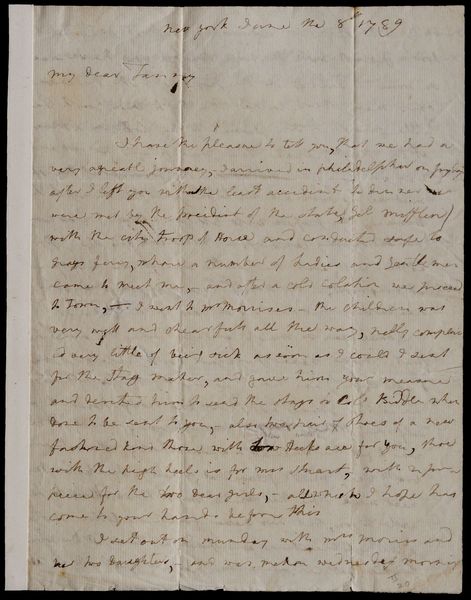 New York June the 8th 1789
my dear Fanny
I have the pleasure to tell you, that we had a
very agreable journey, I arrived in philadelphia on fryday
after I left you without the least accident to distress us
were met by the president of the state (Gel mifflin)
with the city troop of Horse and conducted safe to
grays ferry, where a number of Ladies and Gentlemen
came to meet me, and after a cold colation we proceed
to Town, — I went to mr Morrises — the children was
very well and chearfull all the way, nelly complained
very little of being sick as soon as I could I sent
for the stay maker, and gave him your measure
and directed him to send the stays to Colo Biddle when
done to be sent to you, also two pair of shoes of a new
fashioned kind those with low Heels are for you, those
with the high heels is for mrs Stuart, with a pair
peece for the two dear girls, – all which I hope has
come to your hands before this
I set out on munday with mrs morris and
her two Daughters, – and was met on wednesday morning